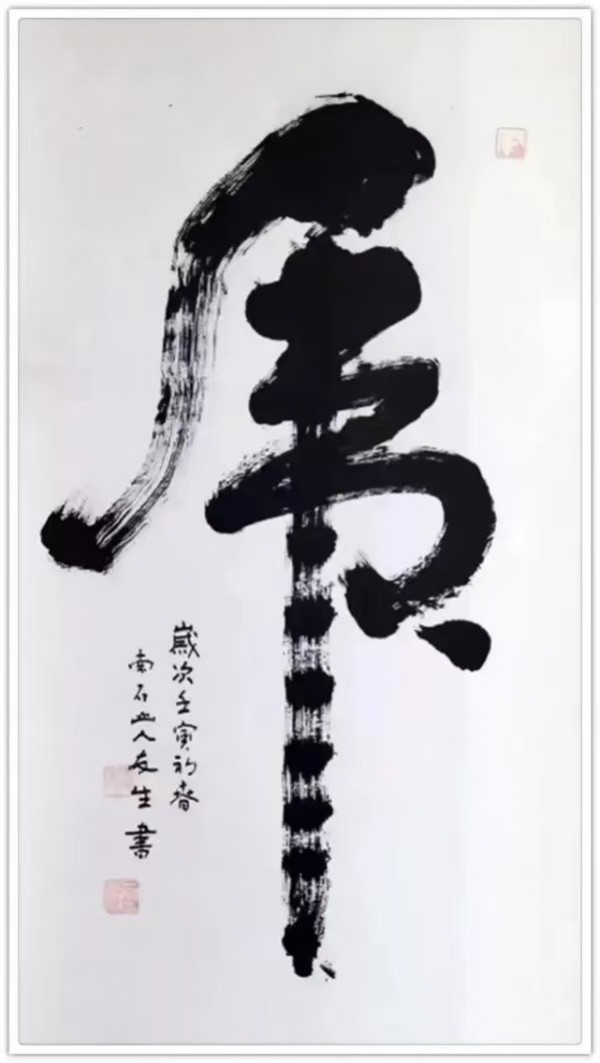 虎
歲次壬寅初春
南石山人友生書